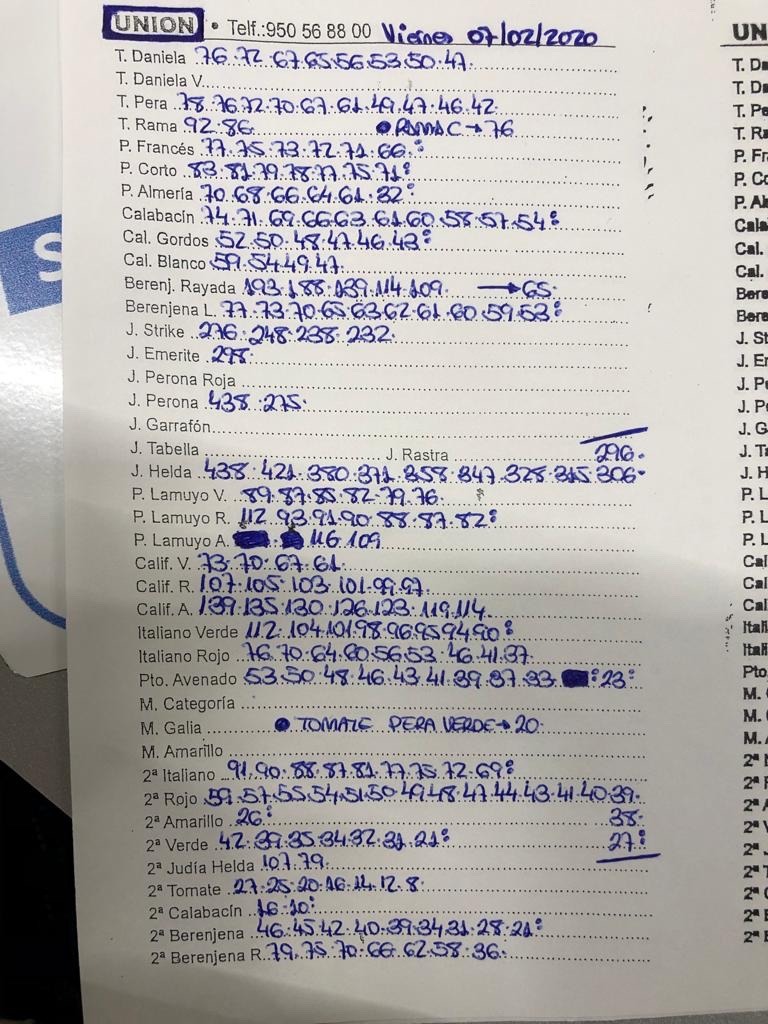 UNION • Telf.:950 56 88 00 Viernes 07/02/2020
T. Daniela 76.72.67.65.56.53.50.47.
T. Daniela V.
T. Pera 78.76.72.70.67.61.49.47.46.42.
T. Rama 92.86. • RAMA C → 76
P. Francés 77.75.73.72.71.66:
P. Corto 83.81.79.78.77.75.71:
P. Almería 70.68.66.64.61.32:
Calabacín 74.71.69.66.63.61.60.58.57.54:
Cal. Gordos 52.50.48.47.46.43:
Cal. Blanco 59.54.49.47.
Berenj. Rayada 193.188.139.114.109. → 65.
Berenjena L. 77.73.70.65.63.62.61.60.59.53:
J. Strike 276.248.238.232.
J. Emerite 298.
J. Perona Roja
J. Perona 438.275.
J. Garrafón
J. Tabella J. Rastra 296.
J. Helda 438.421.380.371.358.347.328.315.306.
P. Lamuyo V. 89.87.85.82.79.76.
P. Lamuyo R. 112.93.91.90.88.87.82:
P. Lamuyo A. 116.109
Calif. V. 73.70.67.61.
Calif. R. 107.105.103.101.99.97.
Calif. A. 139.135.130.126.123.119.114.
Italiano Verde 112.104.101.98.96.95.94.90:
Italiano Rojo 76.70.64.60.56.53.46.41.37.
Pto. Avenado 53.50.48.46.43.41.39.37.33. : 23:
M. Categoría
M. Galia • TOMATE PERA VERDE → 20.
M. Amarillo
2ª Italiano 91.90.88.87.81.77.75.72.69:
2ª Rojo 59.57.55.54.51.50.49.48.47.44.43.41.40.39.
2ª Amarillo 26: 38.
2ª Verde 42.39.35.34.32.31.21: 27:
2ª Judía Helda 107.79.
2ª Tomate 27.25.20.16.14.12.8.
2ª Calabacín 16.10:
2ª Berenjena 46.45.42.40.39.34.31.28.21:
2ª Berenjena R. 79.75.70.66.62.58.36.